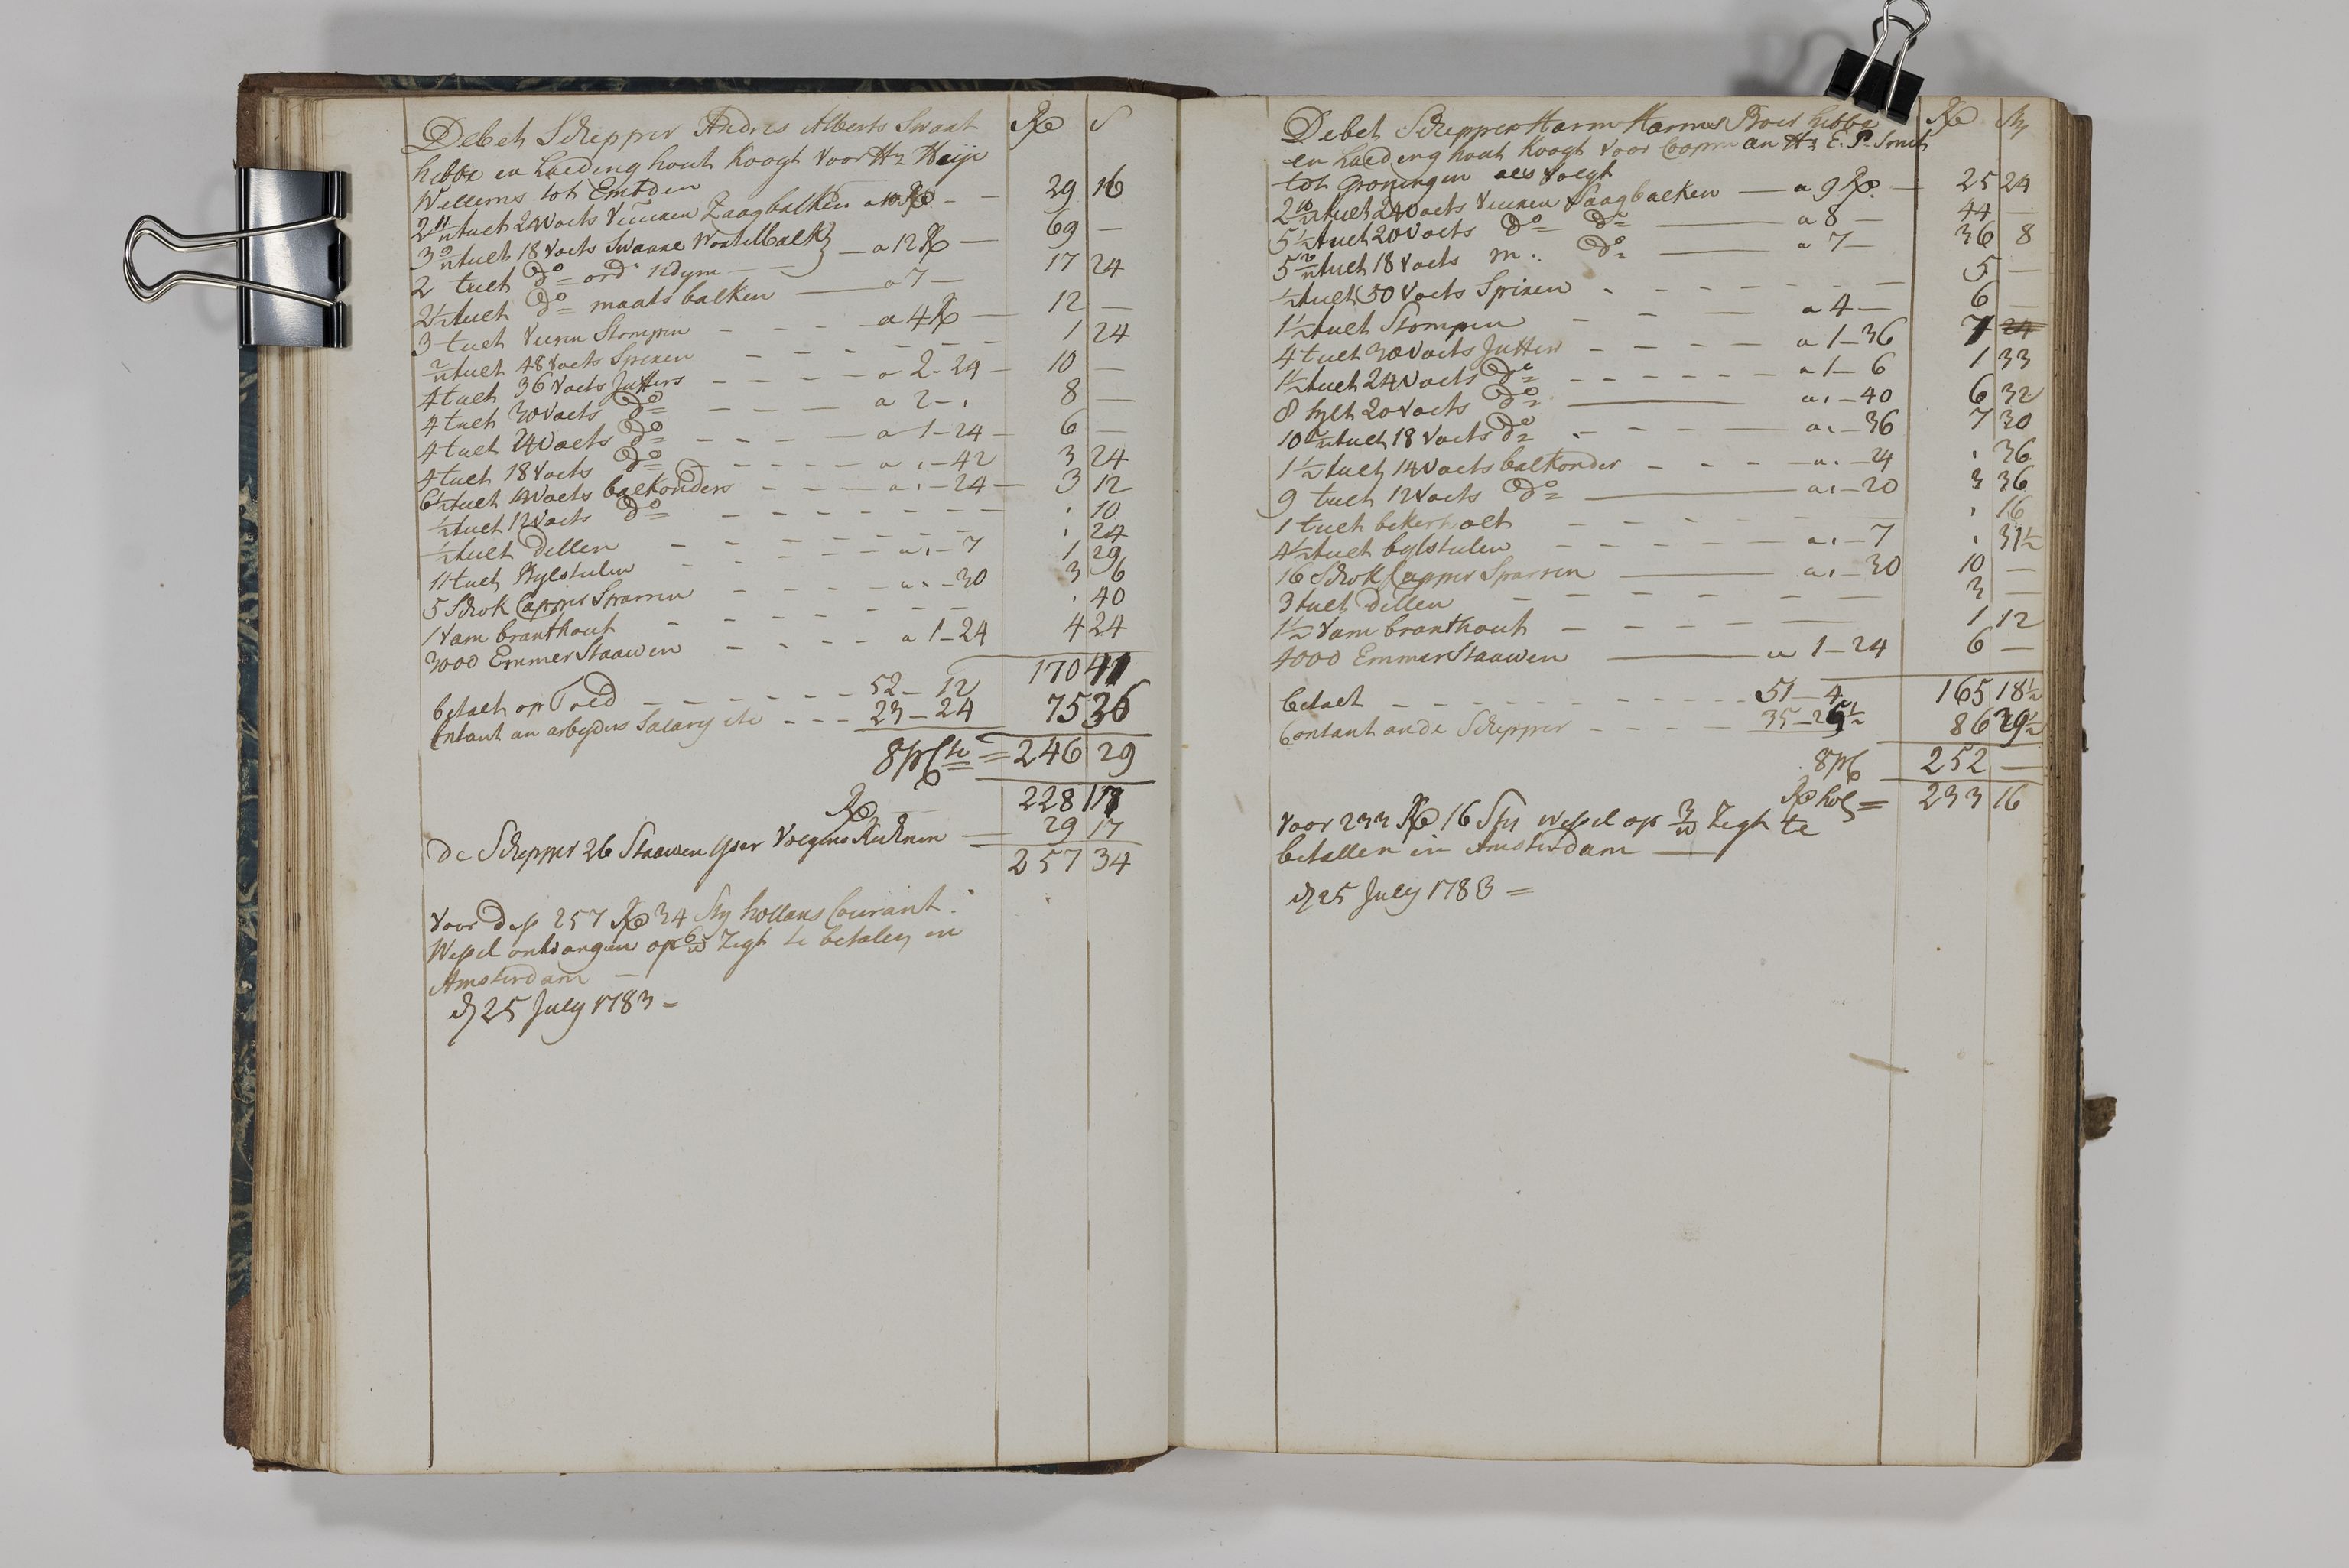 Debet Schepper Andries Alberts Swaat Rd S
hebbe en Laeding hout Koogt voor Hr Heije
Willems tot Embden
2 11/12 tult 24 voets vuuren Zaagbalken a 10 Rd - - 29 16
3 9/12 tult 18 voets Swaare
2 tult do ord: } - a 12 Rd - 69 -
2½ tult do maats balken - a 7 - 17 24
3 tult vuren Stompen - - - a 4 Rd - 12 -
2/12 tult 48 voets Spieren - - - - - 1 24
4 tult 36 voets Jutters - - - - a 2-24 - 10 -
4 tult 30 voets do - - - a 2-, 8 -
4 tult 24 voets do - - - - a 1-24 - 6 -
4 tult 18 voets do - - - - a ,-42 3 24
6½ tult 14 voets balkonders - - - a ,-24 - 3 12
½ tult 12 voets do - - - - - - , 10
½ tult Dellen - - - - - , 24
11 tult Bylstulen - - - a ,-7 1 29
5 Schok Capper Sparren - - - a ,-30 3 6
1 vam branthout - - - - - , 40
3000 Emmer Staawen - - - - a 1-24 4 24
170 41
betaelt op Toed - - - - - 52-12
Contant an arbeyders Salary etc - - - 23-24 75 36
8 prCto = 246 29
Rd 228 17
De Schepper 26 Staawen yser volgens - 29 17
257 34
Voor dese 257 Rd 34 Sty hollans Courant:
Wessel ontvangen op 6/w Zegt te betalen in
Amsterdam -
d 25 July 1783 =
Debet Schepper Harm Harms Boer hebbe Rd Sty
en Laeding hout Koogt voor Coopman Hr E. P. Smit
tot Groningen als volgt
2 10/12 tult 24 voets vuuren Saagbalken - a 9 Rd - 25 24
5½ tult 20 voets do do - a 8 - 44 -
5 2/12 tult 18 voets m. do - a 7 - 36 8
½ tult 50 voets Spieren - - - - - 5 -
1½ tult Stompen - - - a 4 - 6 -
4 tult 30 voets Jutters - - - - a 1-36 7 24
1½ tult 24 voets do - - - - - a 1-6 1 33
8 tylt 20 voets do - a ,-40 6 32
10 2/12 tult 18 voets do - - - - a ,-36 7 30
1½ tult 14 voets balkonder - - - a ,-24 , 36
9 tult 12 voets do - a ,-20 3 36
1 tult - - - - , 16
4½ tult bylstulen - - - - a ,-7 , 31½
16 Schok Capper Sparren - a ,-30 10 -
3 tult Dellen - - - - - - 3 -
1½ vam branthout - - - - 1 12
4000 Emmer Staawen - a 1-24 6 -
165 18½
betaelt - - - - - - 51-4
Contant an de Schepper - - - - 35-25½ 86 29½
8 prC 252 -
Rd hol = 233 16
Voor 233 Rd 16 Sty wessel op 3/w Zegt te
betallen in Amsterdam -
d 25 July 1783 =